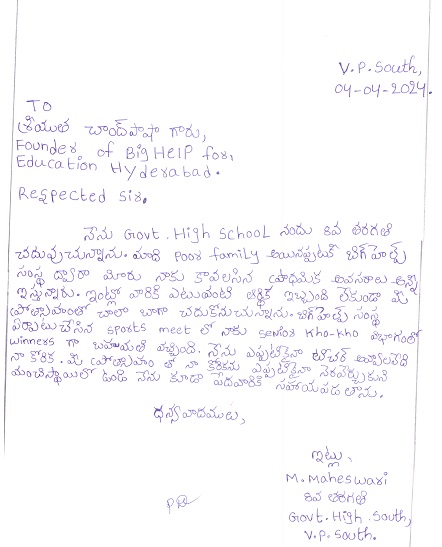 V.P.South,
04-04-2024.
TO
శ్రీయుత చాంద్‌పాషా గారు,
Founder of BigHelp for,
Education Hyderabad.
Respected Sir,
నేను Govt. High School నందు 8వ తరగతి
చదువుచున్నాను. మాది poor family అయినప్పటికీ బిగ్‌హెల్ప్
సంస్థ ద్వారా మీరు నాకు కావలసిన ప్రాథమిక అవసరాలు అన్ని
ఇస్తున్నారు. ఇంట్లో వారికి ఎటువంటి ఆర్థిక ఇబ్బంది లేకుండా మీ
ప్రోత్సాహంతో చాలా బాగా చదుకొనుచున్నాను. బిగ్‌హెల్ప్ సంస్థ
ఏర్పాటుచేసిన sports meet లో నాకు senior kho-kho విభాగంలో
winners గా బహుమతి వచ్చింది. నేను ఎప్పటికైనా టీచర్ అవ్వాలన్నది
నా కోరిక. మీ ప్రోత్సాహం తో నా కోరికను ఎప్పటికైనా నెరవేర్చుకుని
మంచిస్థాయిలో ఉండి నేను కూడా పేదవారికి సహాయపడతాను.
ధన్యవాదములు,
ఇట్లు,
M. Maheswari
8వ తరగతి
Govt. High South,
V.P. South.